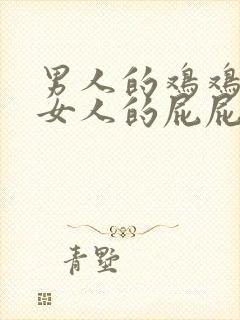 男人的鸡鸡
女人的屁屁
青墅